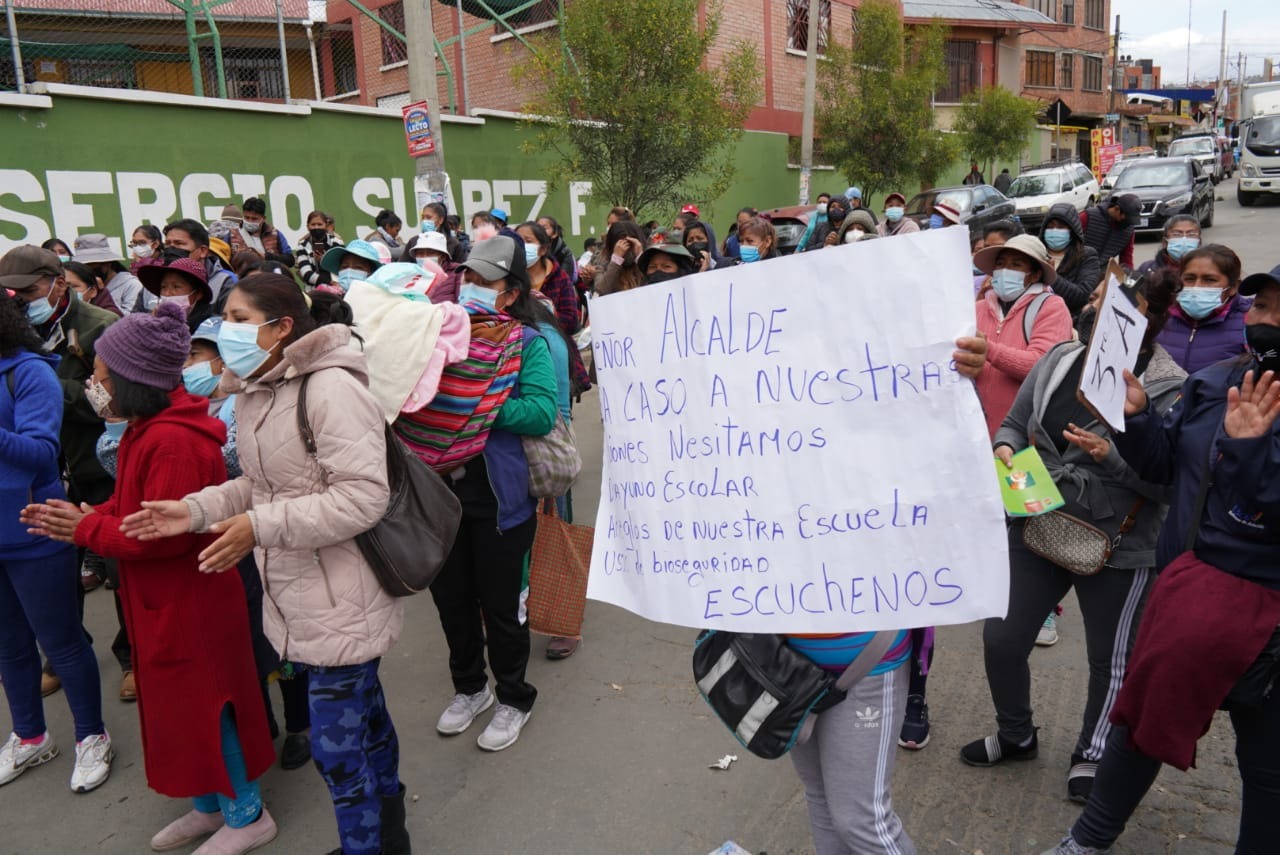 SERGIO SUÁREZ F.
LECTO
EÑOR ALCALDE
A CASO A NUESTRAS
IONES NESITAMOS
AYUNO ESCOLAR
DE NUESTRA ESCUELA
de bioseguridad
ESCUCHENOS
adidas